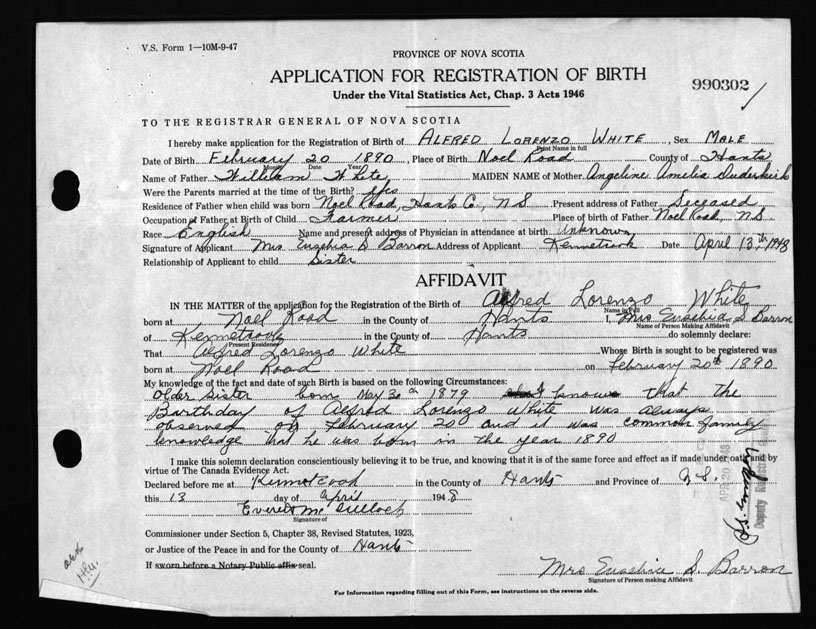 V.S. Form 1—10M-9-47
PROVINCE OF NOVA SCOTIA
APPLICATION FOR REGISTRATION OF BIRTH
990302
Under the Vital Statistics Act, Chap. 3 Acts 1946
TO THE REGISTRAR GENERAL OF NOVA SCOTIA
I hereby make application for the Registration of Birth of ALFRED LORENZO WHITE, Sex MALE
Print Name in full
Date of Birth February 20 1890, Place of Birth Noel Road County of Hants
Month Date Year
Name of Father William White MAIDEN NAME of Mother Angeline Amelia
Were the Parents married at the time of the Birth? yes
Residence of Father when child was born Noel Road, Hants Co., NS Present address of Father Deceased
Occupation of Father at Birth of Child Farmer Place of birth of Father Noel Road, NS.
Race English Name and present address of Physician in attendance at birth Unknown
Signature of Applicant Mrs Eusebia S Barron Address of Applicant Kennetcook Date April 13th 1948
Relationship of Applicant to child Sister
AFFIDAVIT
IN THE MATTER of the application for the Registration of the Birth of Alfred Lorenzo White
Name in Full
born at Noel Road in the County of Hants I, Mrs Eusebia S Barron
Name of Person Making Affidavit
of Kennetcook in the County of Hants do solemnly declare:
Present Residence
That Alfred Lorenzo White Whose Birth is sought to be registered was
born at Noel Road on February 20th 1890
My knowledge of the fact and date of such Birth is based on the following Circumstances:
Older Sister born May 30th 1879 know that the
Birthday of Alfred Lorenzo White was always
observed on February 20 and it was common family
knowledge that he was born in the year 1890
I make this solemn declaration conscientiously believing it to be true, and knowing that it is of the same force and effect as if made under oath and by
virtue of The Canada Evidence Act.
Declared before me at Kennetcook in the County of Hants and Province of N.S.
this 13 day of April 1948
Everett McCulloch
Signature of
Commissioner under Section 5, Chapter 38, Revised Statutes, 1923,
or Justice of the Peace in and for the County of Hants
If sworn before a Notary Public affix seal.
Mrs Eusebia S. Barron
Signature of Person making Affidavit
For Information regarding filling out of this Form, see instructions on the reverse side.
APR 20
Deputy Registrar